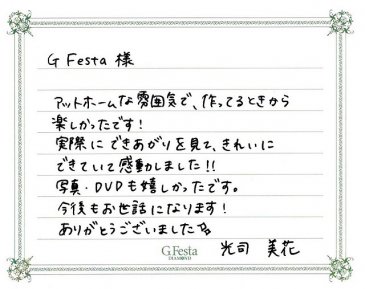 G Festa 様
アットホームな雰囲気で、作ってるときから
楽しかったです!
実際にできあがりを見て、きれいに
できていて感動しました!!
写真・DVDも嬉しかったです。
今後もお世話になります!
ありがとうございました
G.Festa
DIAMOND
光司 美花